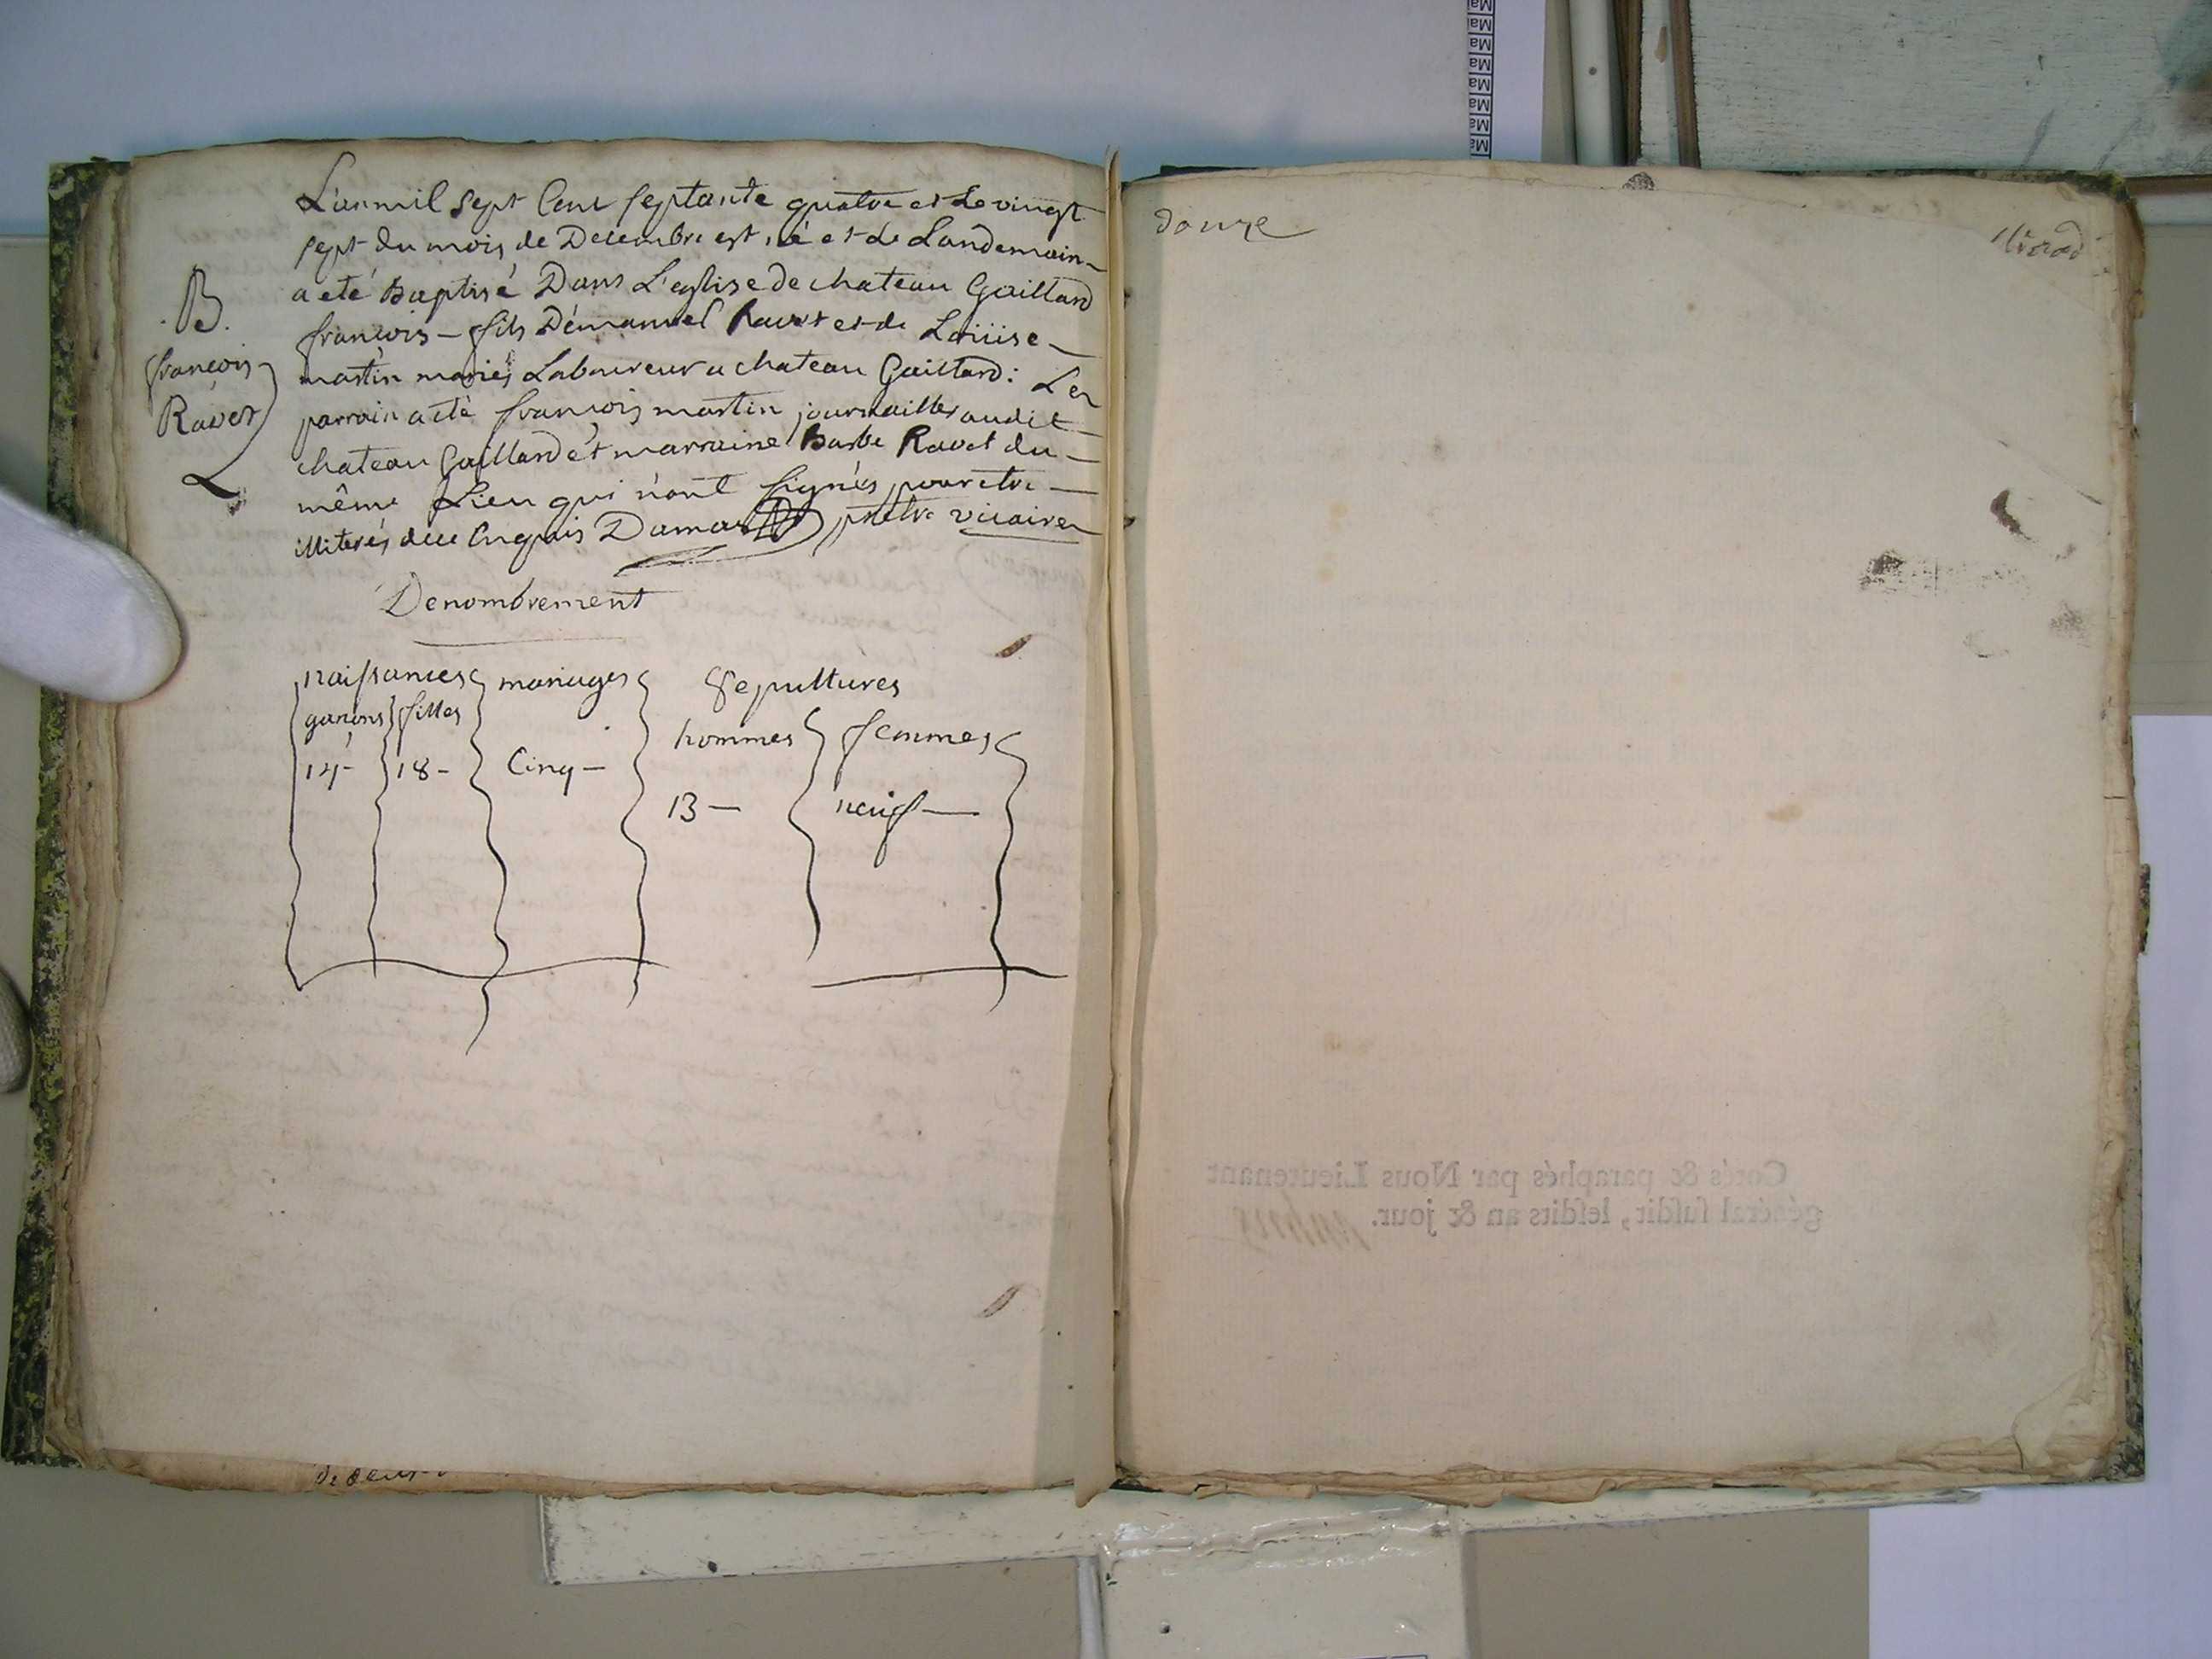 L'an mil sept Cent septante quatre et Le vingt
sept du mois de Decembre est né et Le Landemain
a eté Baptisé Dans L'eglise de chateau Gaillard
françois – fils Démanuel Ravet et de Loüise
martin mariés Laboureur a chateau Gaillard: Le
parrain a eté françois martin journaillier audit
chateau Gaillard et marraine Barbe Ravet du
même Lieu qui n'ont signés pour etre
illiterés de ce Enquis Damas pretre vicaire
B.
françois
Ravet
Denombrement
naissances mariages Sepultures
garçons filles
hommes femmes
14 – 18 – Cinq –
13 – neuf –
douze
Cotés & paraphés par Nous Lieutenant
général susdit, lesdits an & jour.